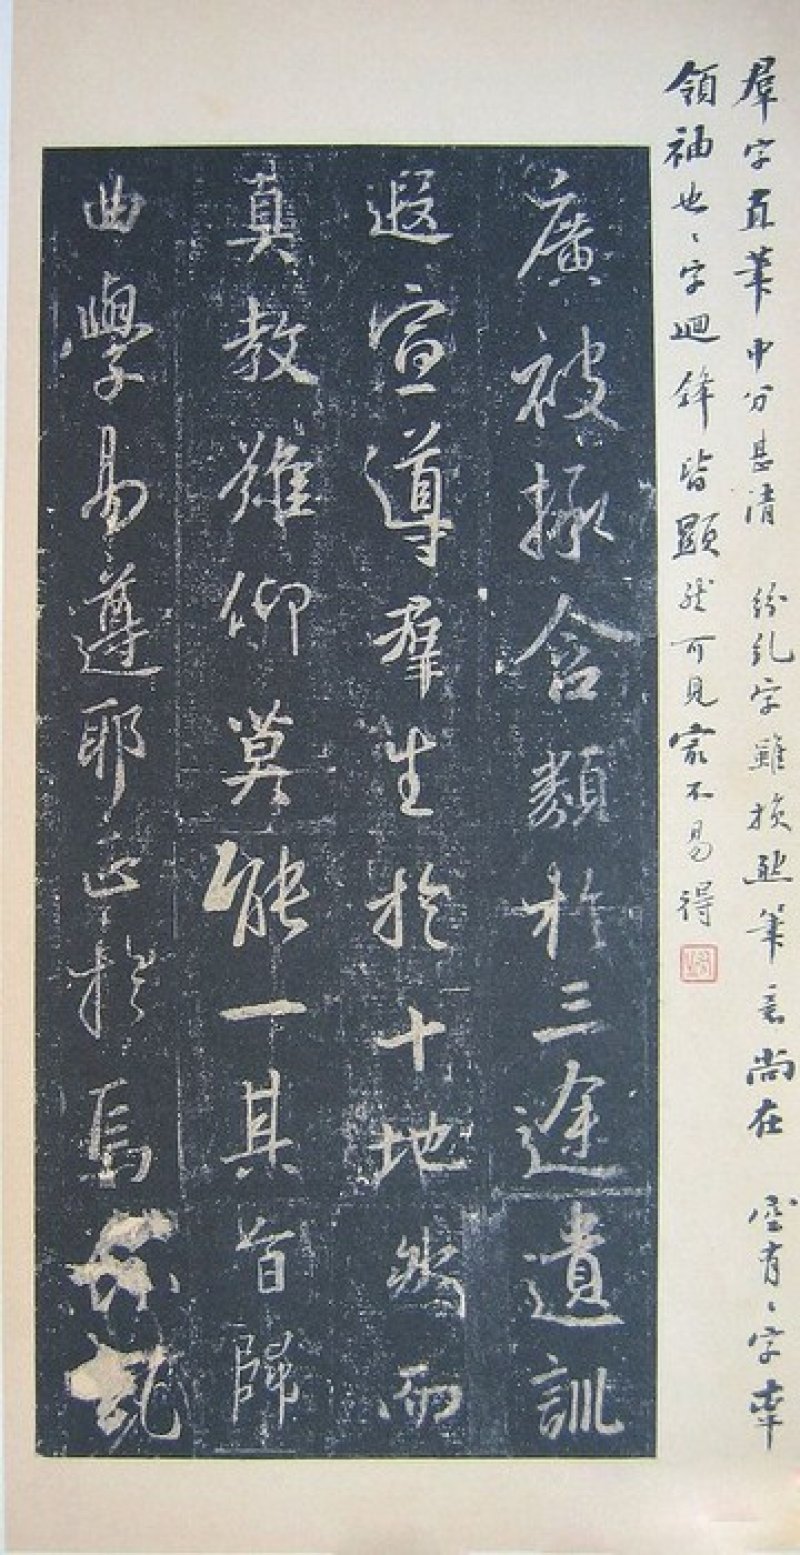 羣字直筆中分甚清 紛糺字雖損然筆意尚在 有、字
領袖也、字迴鋒皆顯然可見㝡不易得
廣被拯含類於三途遺訓
遐宣導羣生於十地然而
真教難仰莫能一其旨歸
曲學易遵耶正於焉紛糺